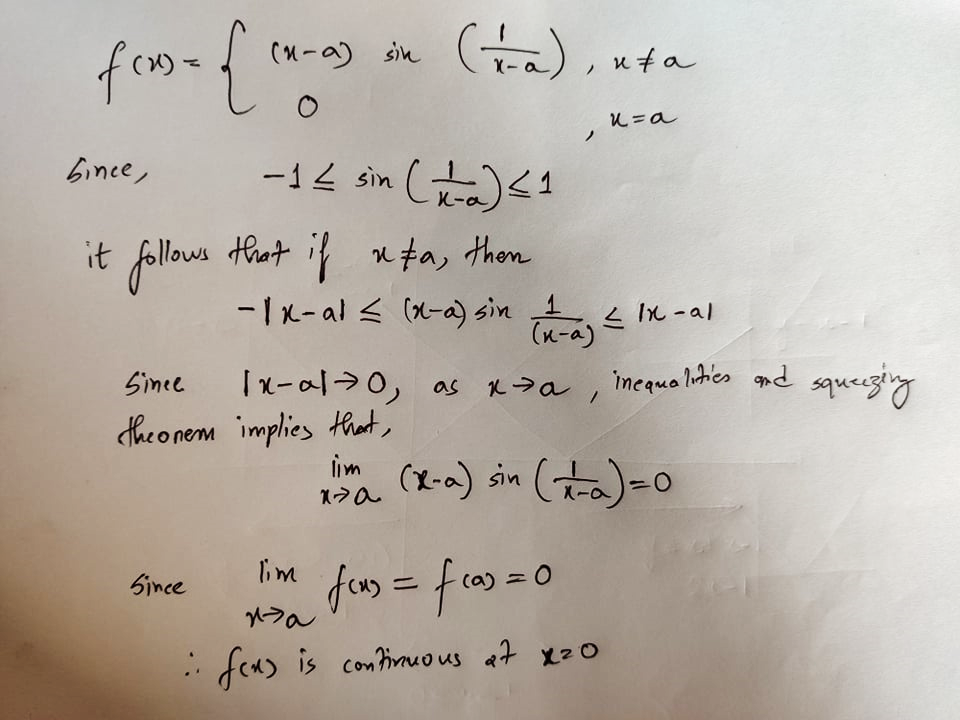 f(x) = { (x-a) sin (1/(x-a)) , x ≠ a
0 , x = a
Since, -1 ≤ sin (1/(x-a)) ≤ 1
it follows that if x ≠ a, then
-|x-a| ≤ (x-a) sin 1/(x-a) ≤ |x-a|
Since |x-a| → 0, as x → a , inequalities and squeezing
theorem implies that,
lim x→a (x-a) sin (1/(x-a)) = 0
Since lim x→a f(x) = f(a) = 0
∴ f(x) is continuous at x=0